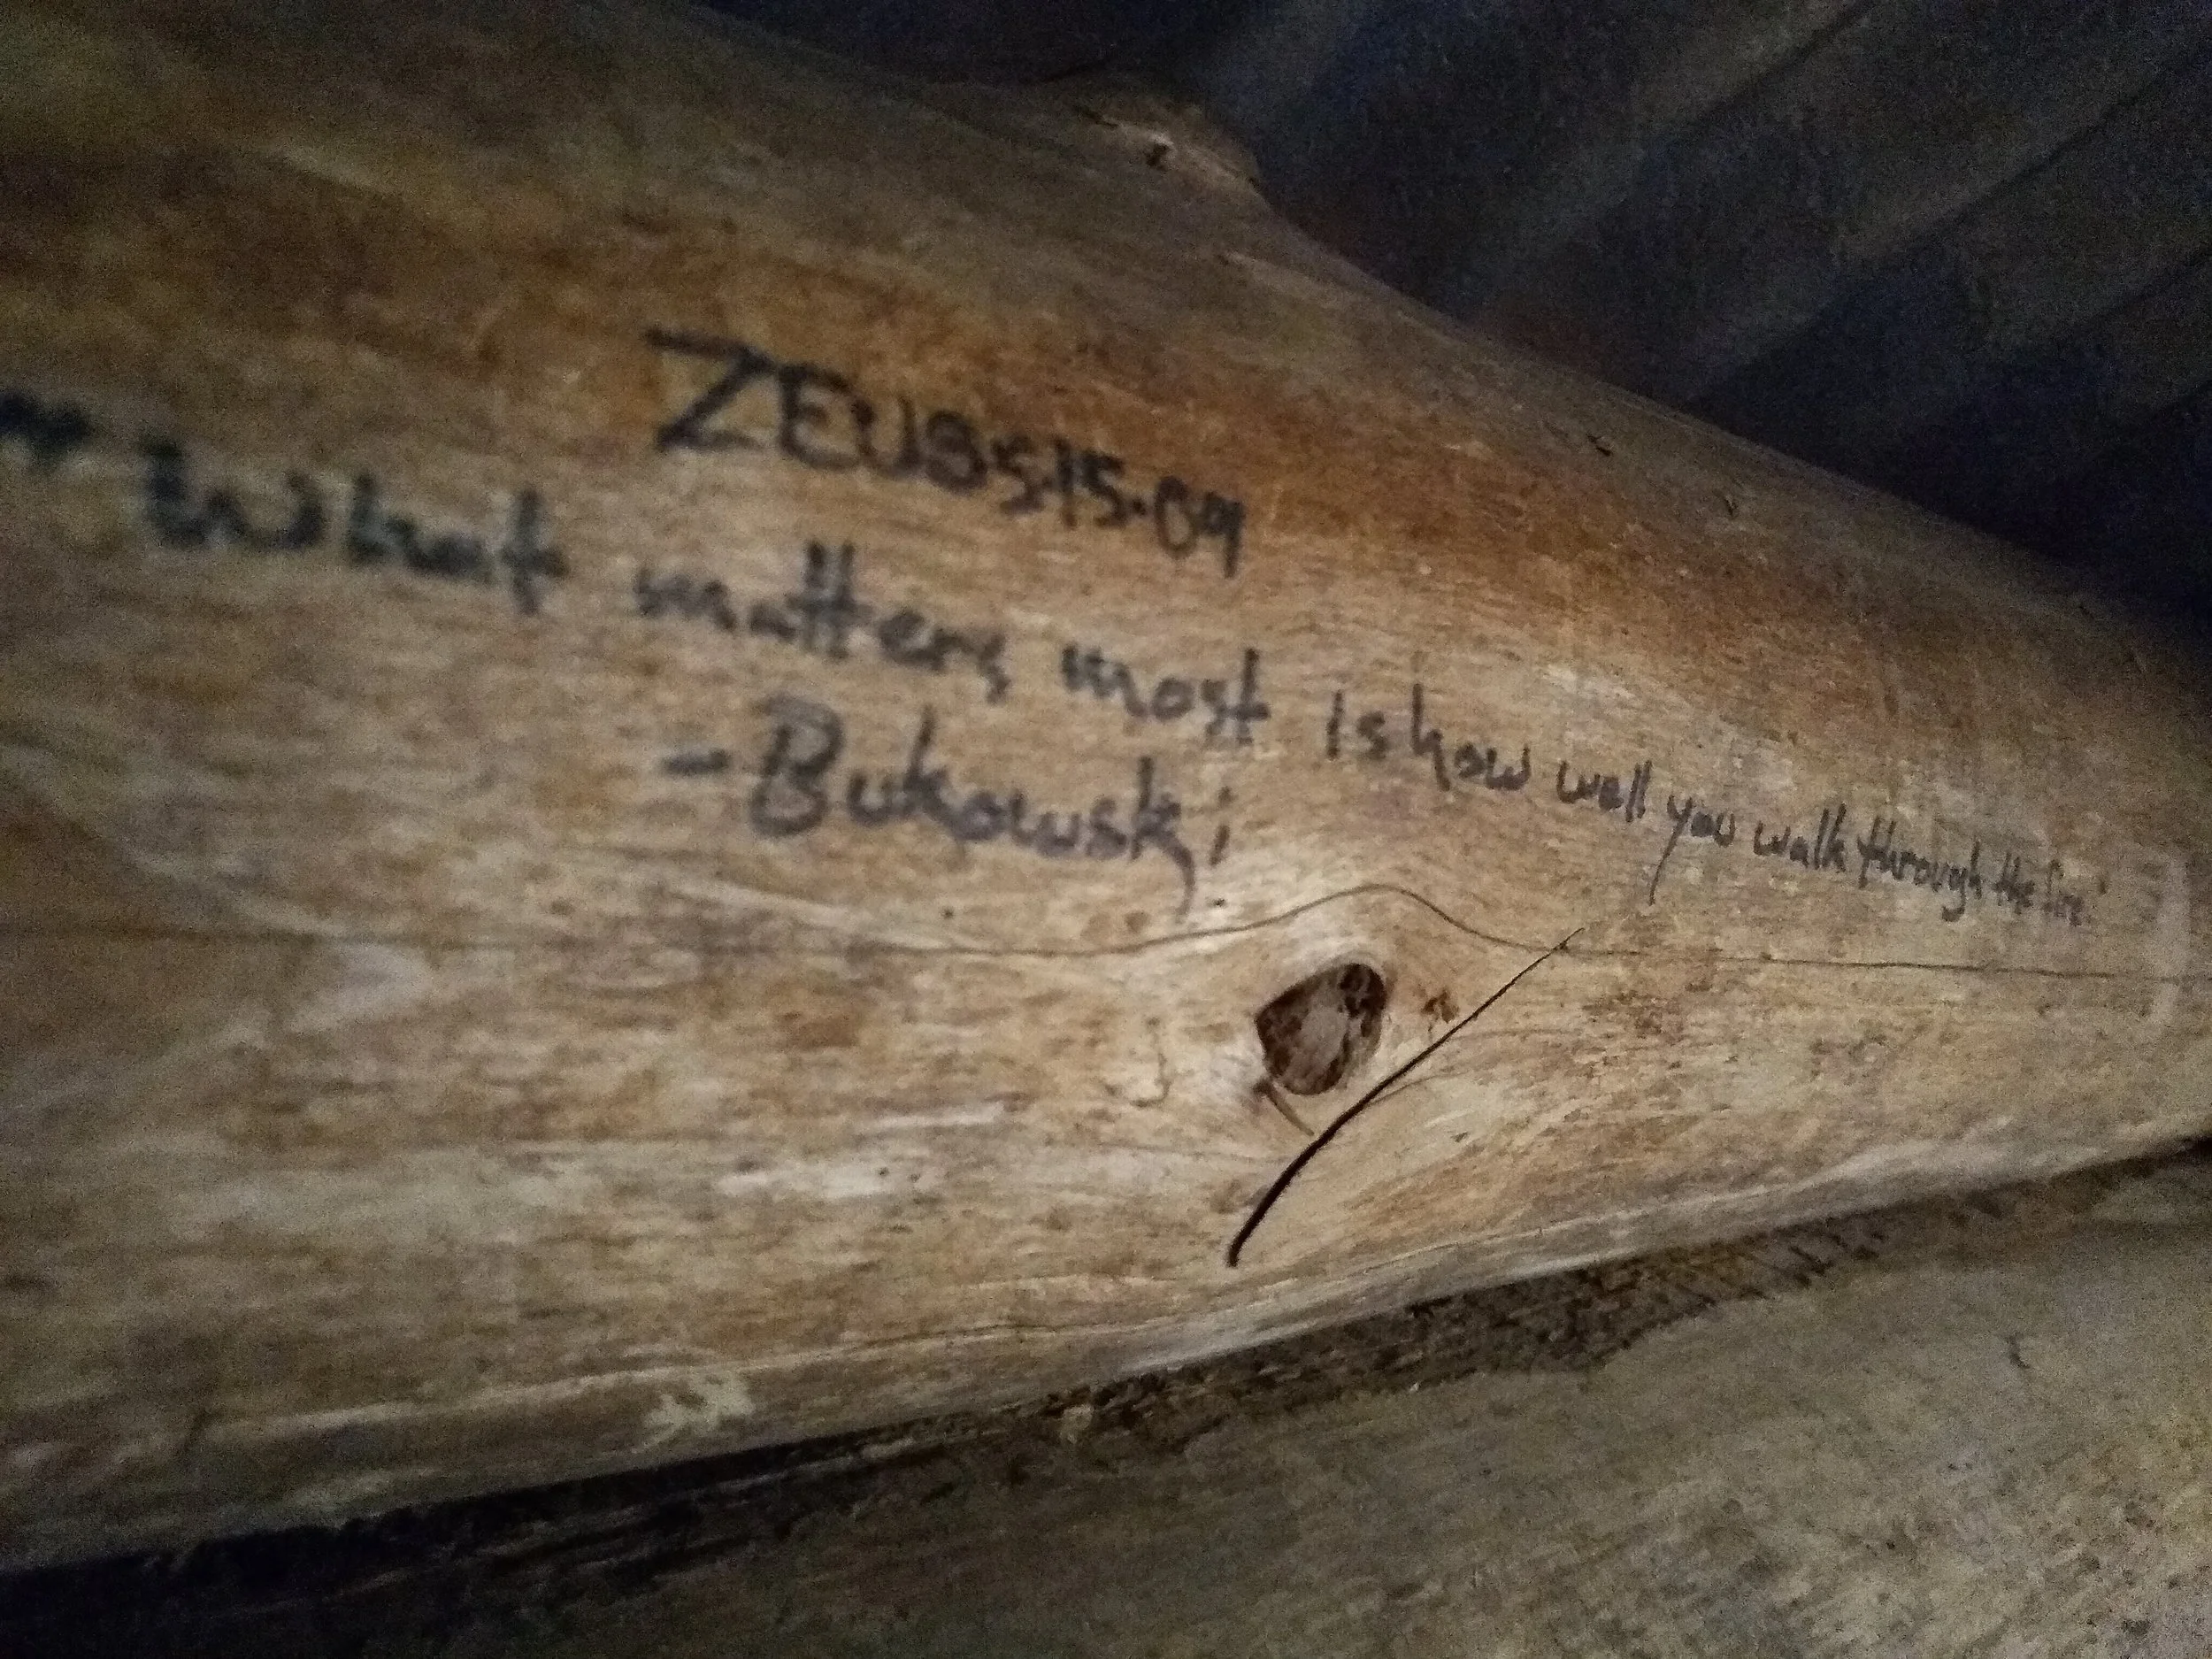 ZEUS 5.15.09
"What matters most is how well you walk through the fire."
- Bukowski